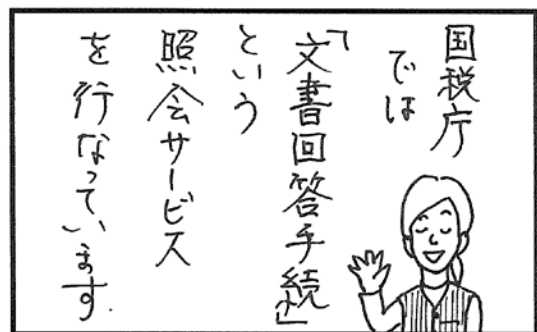 国税庁
では
「文書回答手続」
という
照会サービス
を行なっています.